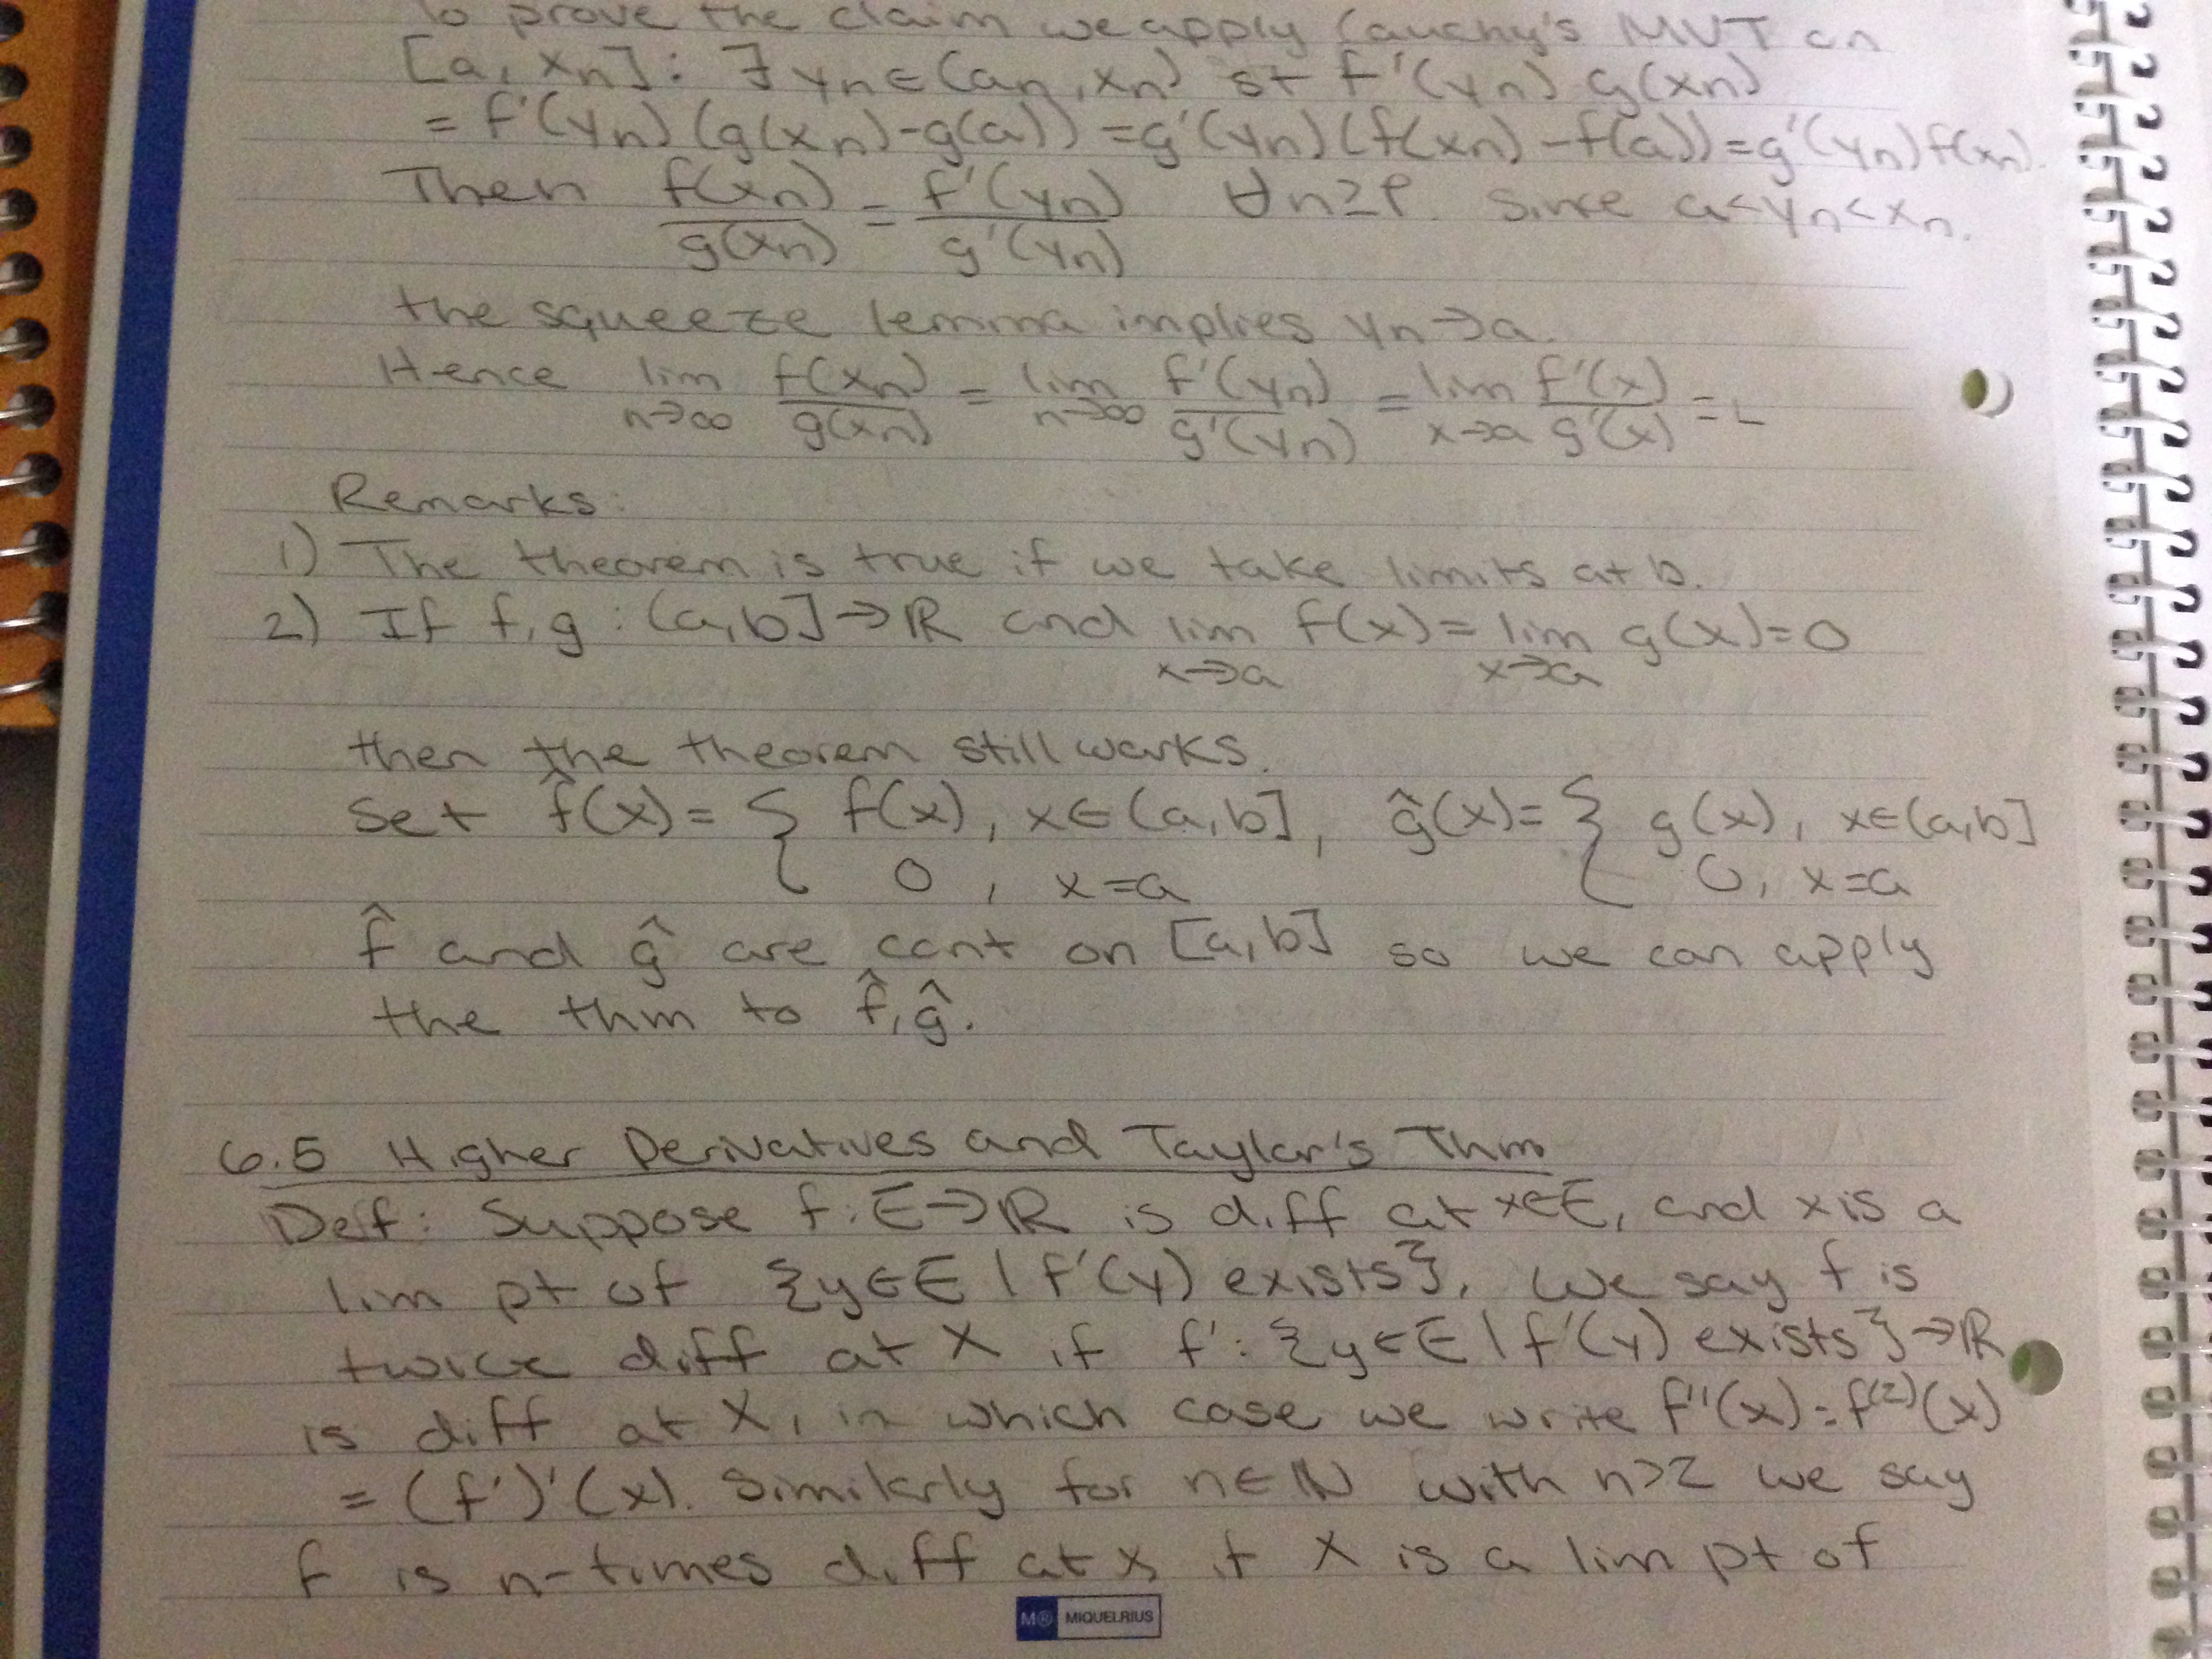 To prove the claim we apply Cauchy's MVT on
[a, xn]: ∃ yn ∈ (an, xn) st f'(yn) g(xn)
= f'(yn) (g(xn)-g(a)) = g'(yn) (f(xn) - f(a)) = g'(yn) f(xn).
Then f(xn)/g(xn) = f'(yn)/g'(yn) ∀n≥P. Since a<yn<xn.
the squeeze lemma implies yn→a.
Hence lim n→∞ f(xn)/g(xn) = lim n→∞ f'(yn)/g'(yn) = lim x→a f'(x)/g'(x) = L
Remarks:
1) The theorem is true if we take limits at b.
2) If f,g : (a,b]→ℝ and lim x→a f(x) = lim x→a g(x)=0
then the theorem still works.
Set f̂(x) = { f(x), x∈(a,b], ĝ(x)= { g(x), x∈(a,b]
0, x=a 0, x=a
f̂ and ĝ are cont on [a,b] so we can apply
the thm to f̂, ĝ.
6.5 Higher Derivatives and Taylor's Thm
Def: Suppose f: E→ℝ is diff at x∈E, and x is a
lim pt of {y∈E | f'(y) exists}. We say f is
twice diff at x if f': {y∈E | f'(y) exists}→ℝ
is diff at x, in which case we write f''(x)=f⁽²⁾(x)
= (f')'(x). Similarly for n∈ℕ with n>2 we say
f is n-times diff at x if x is a lim pt of
M® MIQUELRIUS